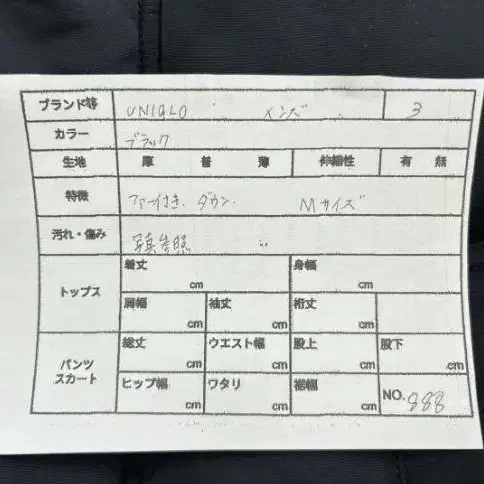 ブランド等 UNIQLO メンズ 3
カラー ブラック
生地 厚 普 薄 伸縮性 有 無
特徴 ファー付き ダウン Mサイズ
汚れ・傷み 写真参照
トップス 着丈 cm 身幅 cm
肩幅 cm 袖丈 cm 裄丈 cm
パンツ スカート 総丈 cm ウエスト幅 cm 股上 cm 股下 cm
ヒップ幅 cm ワタリ cm 裾幅 cm NO. 888